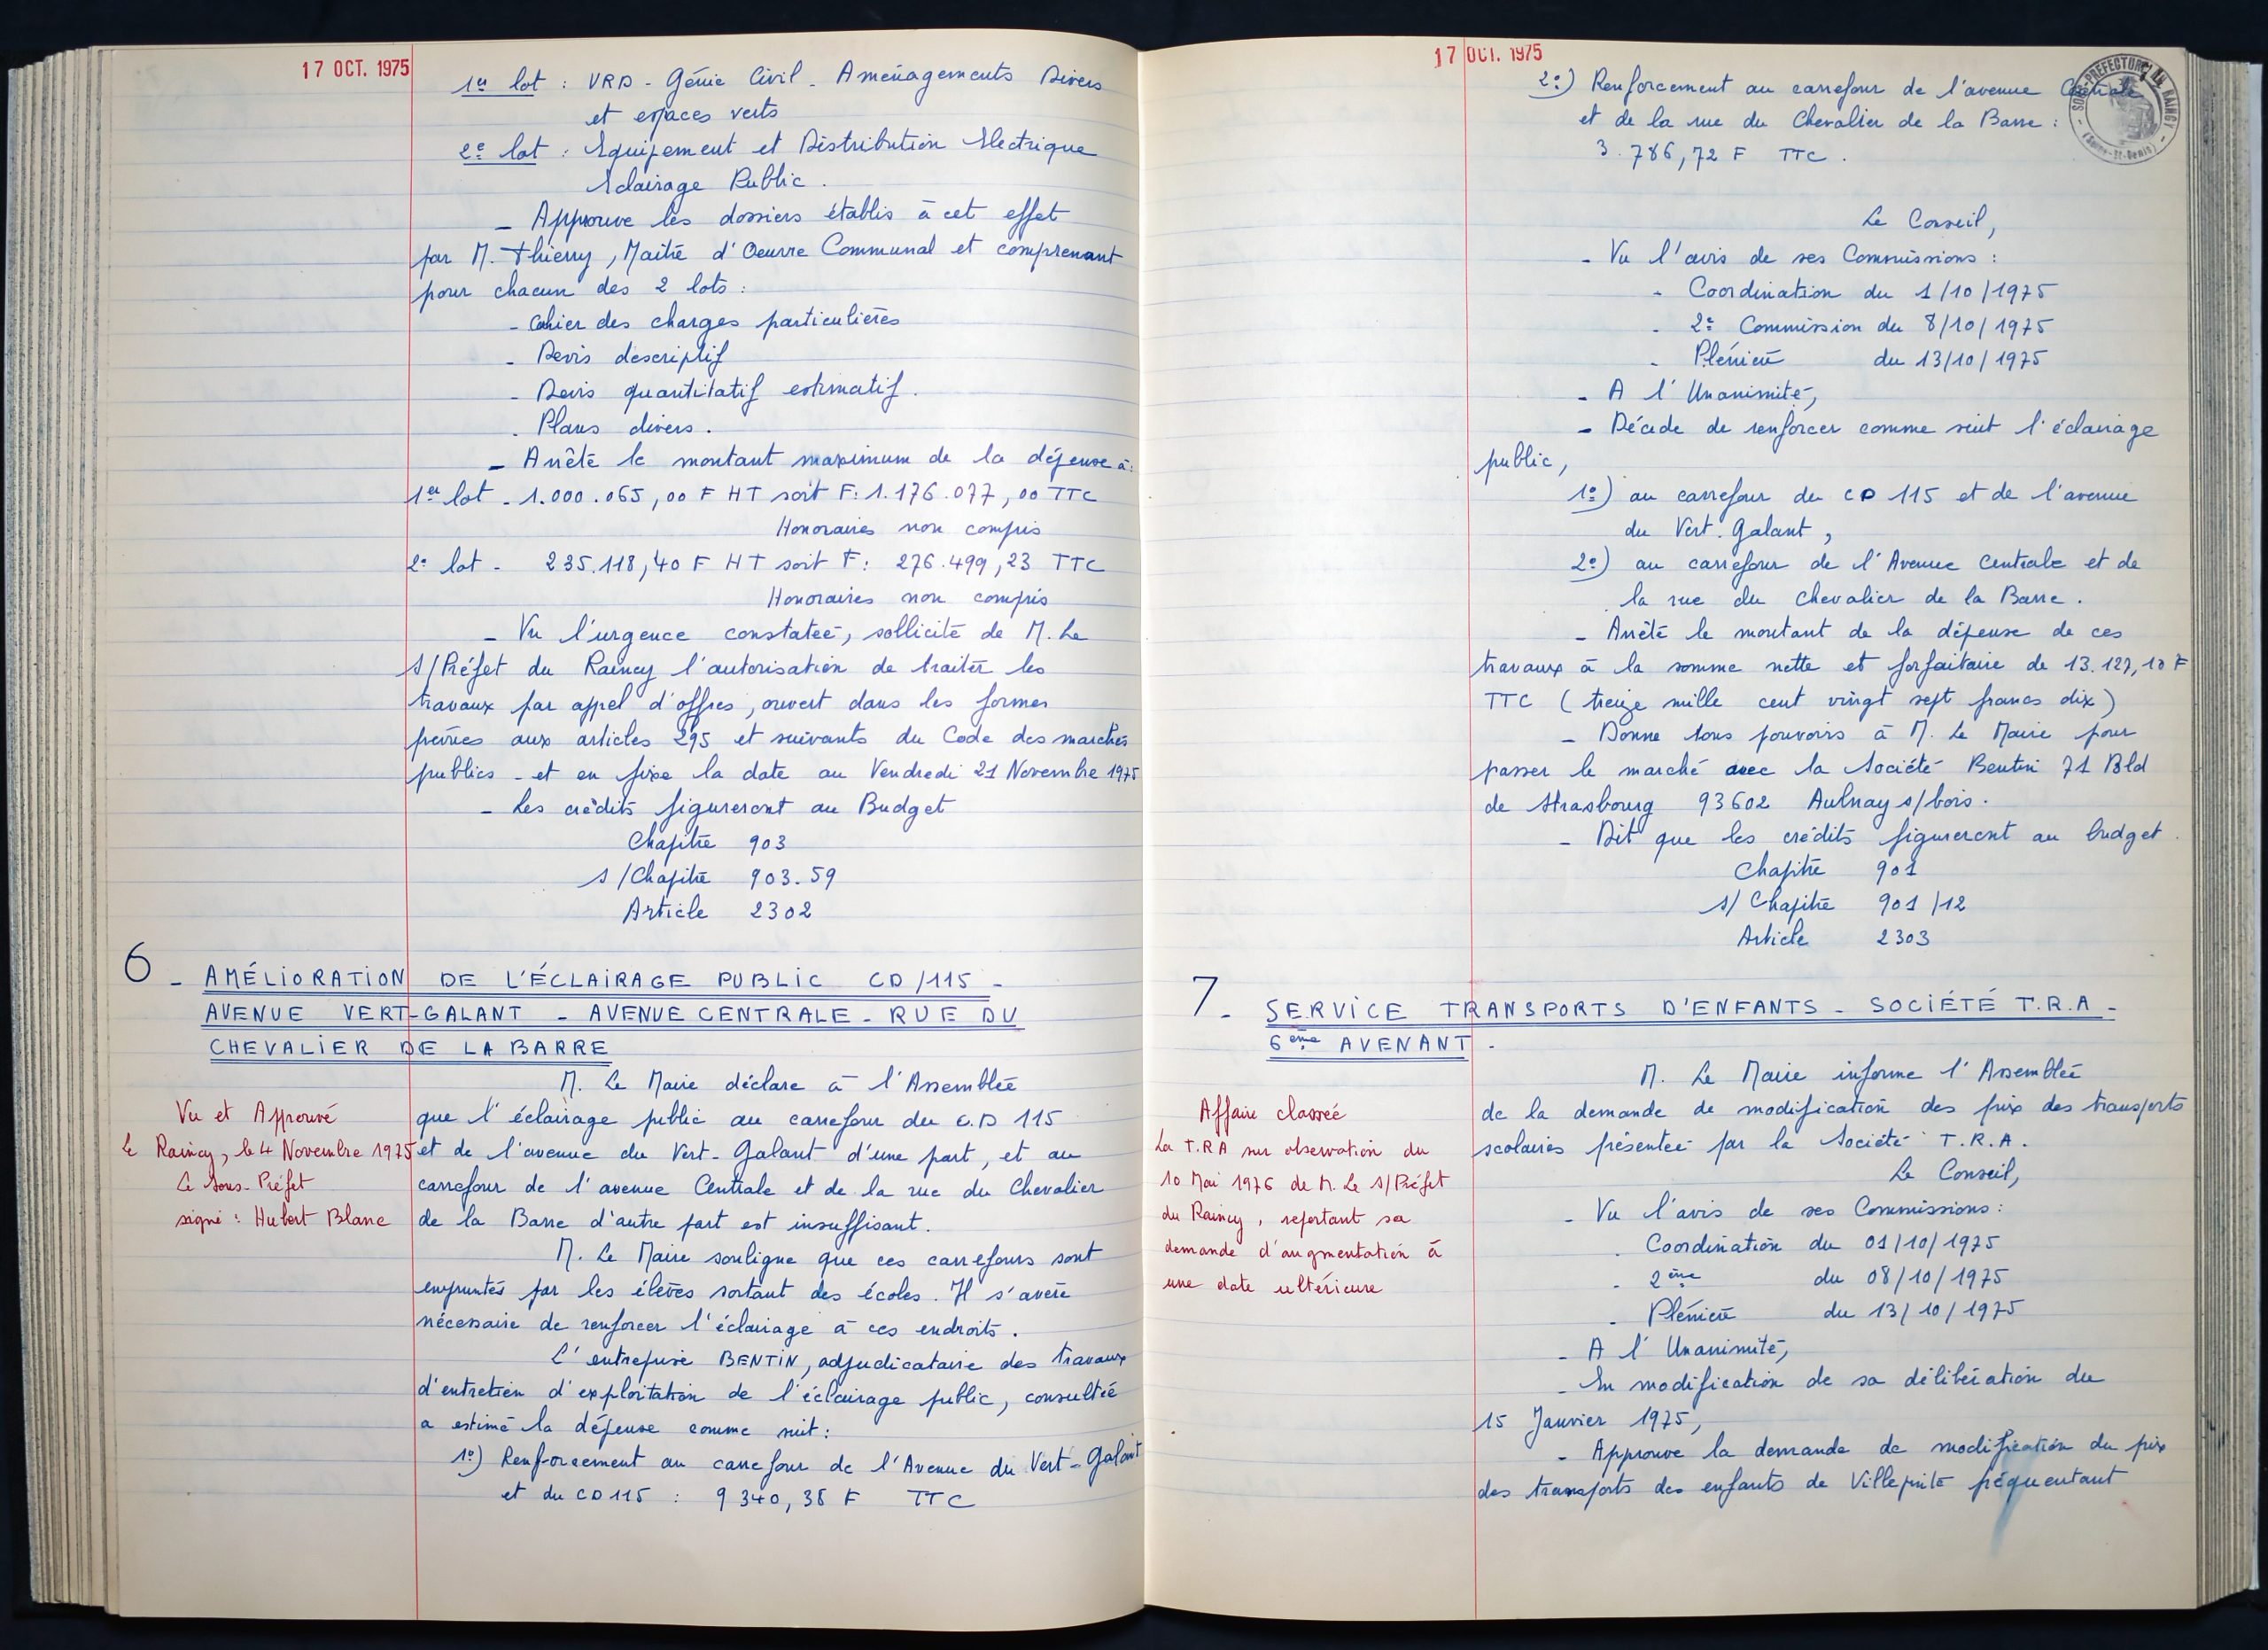 17 OCT. 1975
1er lot : VRD - Génie Civil - Aménagements Divers
et espaces verts
2e lot : Equipement et Distribution Electrique
Eclairage Public.
- Approuve les dossiers établis à cet effet
par M. Thierry, Maître d'Oeuvre Communal et comprenant
pour chacun des 2 lots :
- Cahier des charges particulières
- Devis descriptif
- Devis quantitatif estimatif.
- Plans divers.
- Arrête le montant maximum de la dépense à :
1er lot - 1.000.065,00 F HT soit F: 1.176.077,00 TTC
Honoraires non compris
2e lot - 235.118,40 F HT soit F: 276.499,23 TTC
Honoraires non compris
- Vu l'urgence constatée, sollicite de M. Le
S/Préfet du Raincy l'autorisation de traiter les
travaux par appel d'offres, ouvert dans les formes
prévues aux articles 295 et suivants du Code des marchés
publics - et en fixe la date au Vendredi 21 Novembre 1975
- Les crédits figureront au Budget
Chapitre 903
S/Chapitre 903.59
Article 2302
6 - AMÉLIORATION DE L'ÉCLAIRAGE PUBLIC CD/115 -
AVENUE VERT-GALANT - AVENUE CENTRALE - RUE DU
CHEVALIER DE LA BARRE
M. Le Maire déclare à l'Assemblée
que l'éclairage public au carrefour du C.D 115
et de l'avenue du Vert-Galant d'une part, et au
carrefour de l'avenue Centrale et de la rue du Chevalier
de la Barre d'autre part est insuffisant.
M. Le Maire souligne que ces carrefours sont
empruntés par les élèves sortant des écoles. Il s'avère
nécessaire de renforcer l'éclairage à ces endroits.
L'entreprise BENTIN, adjudicataire des travaux
d'entretien d'exploitation de l'éclairage public, consultée
a estimé la dépense comme suit :
1º) Renforcement au carrefour de l'Avenue du Vert-Galant
et du CD 115 : 9 340,38 F TTC
Vu et Approuvé
Le Raincy, le 4 Novembre 1975
Le Sous-Préfet
signé : Hubert Blanc
17 OCT. 1975
SOUS-PREFECTURE DU RAINCY
(Seine-St-Denis)
2º) Renforcement au carrefour de l'avenue Centrale
et de la rue du Chevalier de la Barre :
3.786,72 F TTC.
Le Conseil,
- Vu l'avis de ses Commissions :
- Coordination du 1/10/1975
- 2e Commission du 8/10/1975
- Plénière du 13/10/1975
- A l'Unanimité,
- Décide de renforcer comme suit l'éclairage
public,
1º) au carrefour du CD 115 et de l'avenue
du Vert.Galant,
2º) au carrefour de l'Avenue Centrale et de
la rue du Chevalier de la Barre.
- Arrête le montant de la dépense de ces
travaux à la somme nette et forfaitaire de 13.127,10 F
TTC (treize mille cent vingt sept francs dix)
- Donne tous pouvoirs à M. Le Maire pour
passer le marché avec la Société Bentin 71 Bld
de Strasbourg 93602 Aulnay s/bois.
- Dit que les crédits figureront au budget.
Chapitre 901
S/Chapitre 901/12
Article 2303
7 - SERVICE TRANSPORTS D'ENFANTS - SOCIÉTÉ T.R.A -
6ème AVENANT -
M. Le Maire informe l'Assemblée
de la demande de modification des prix des transports
scolaires présentée par la Société T.R.A.
Le Conseil,
- Vu l'avis de ses Commissions :
- Coordination du 01/10/1975
- 2ème du 08/10/1975
- Plénière du 13/10/1975
- A l'Unanimité,
- En modification de sa délibération du
15 Janvier 1975,
- Approuve la demande de modification du prix
des transports des enfants de Villepinte fréquentant
Affaire classée
La T.R.A sur observation du
10 Mai 1976 de M. Le S/Préfet
du Raincy, reportant sa
demande d'augmentation à
une date ultérieure